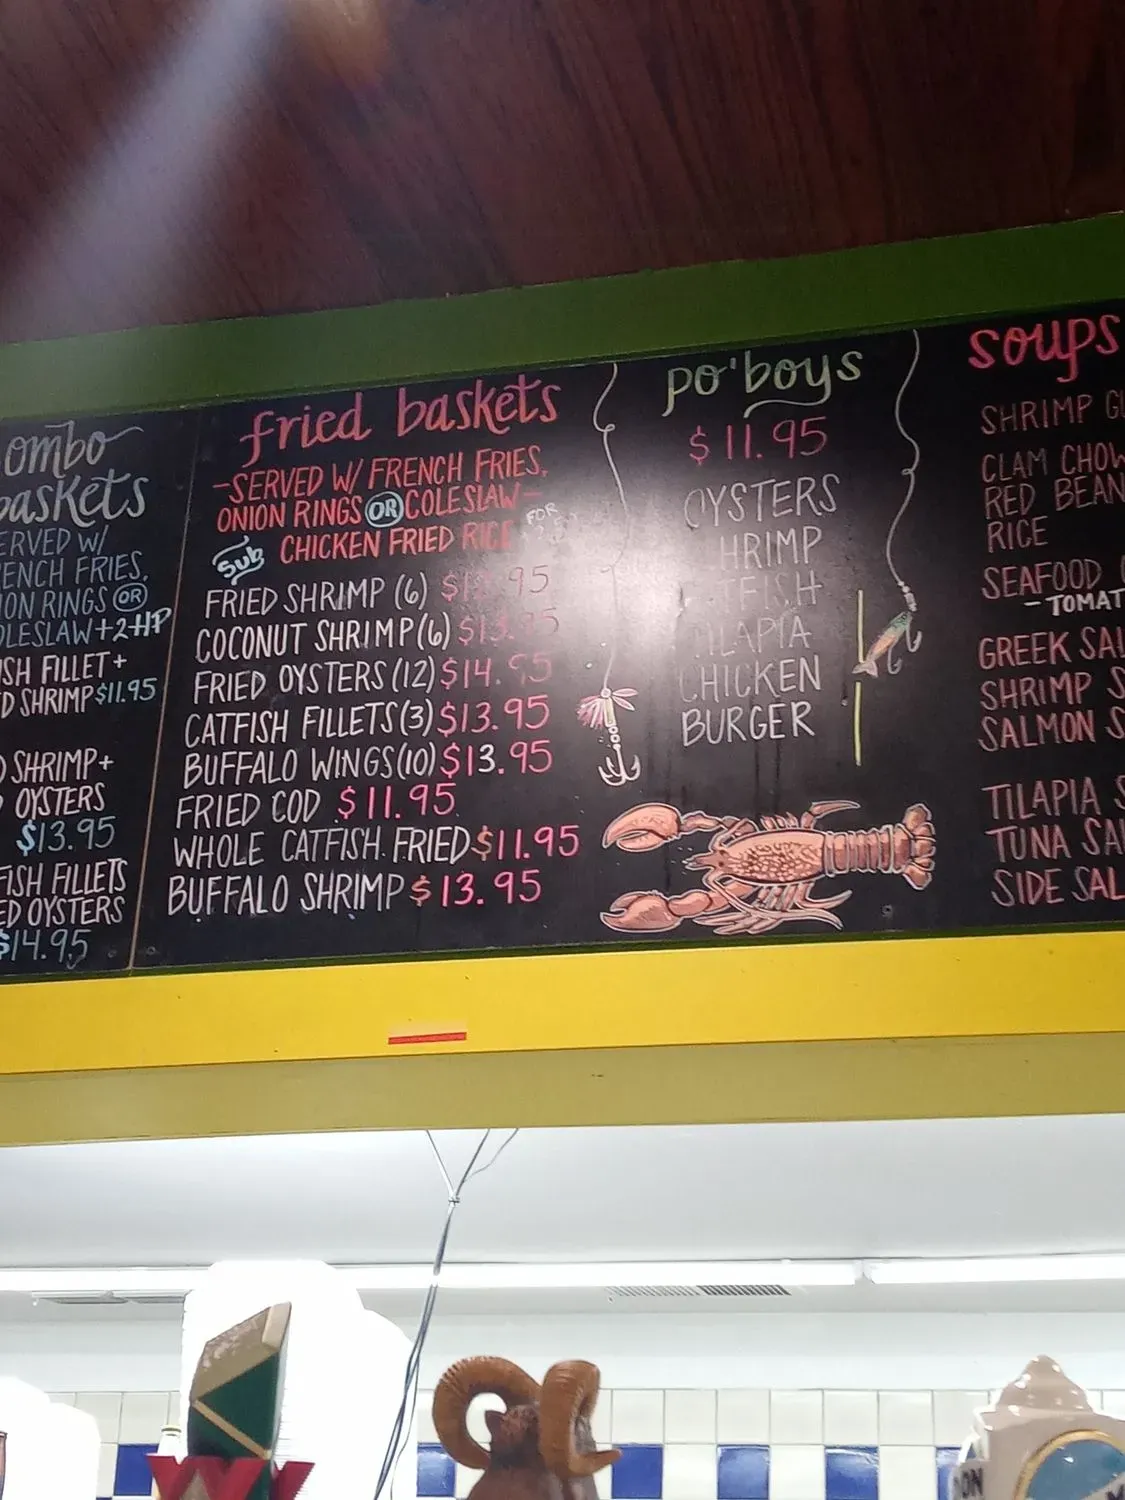 ombo
baskets
ERVED W/
ENCH FRIES,
ION RINGS OR
OLESLAW + 2 HP
ISH FILLET +
D SHRIMP $11.95
SHRIMP +
OYSTERS
$13.95
FISH FILLETS
ED OYSTERS
$14.95
fried baskets
- SERVED W/ FRENCH FRIES,
ONION RINGS OR COLESLAW -
Sub CHICKEN FRIED RICE FOR
FRIED SHRIMP (6)
COCONUT SHRIMP (6) $13.95
FRIED OYSTERS (12) $14.95
CATFISH FILLETS (3) $13.95
BUFFALO WINGS (10) $13.95
FRIED COD $11.95
WHOLE CATFISH FRIED $11.95
BUFFALO SHRIMP $13.95
po'boys
$11.95
OYSTERS
HRIMP
TFISH
TILAPIA
CHICKEN
BURGER
soups
SHRIMP GU
CLAM CHOW
RED BEAN
RICE
SEAFOOD
- TOMAT
GREEK SAL
SHRIMP S
SALMON S
TILAPIA S
TUNA SA
SIDE SAL